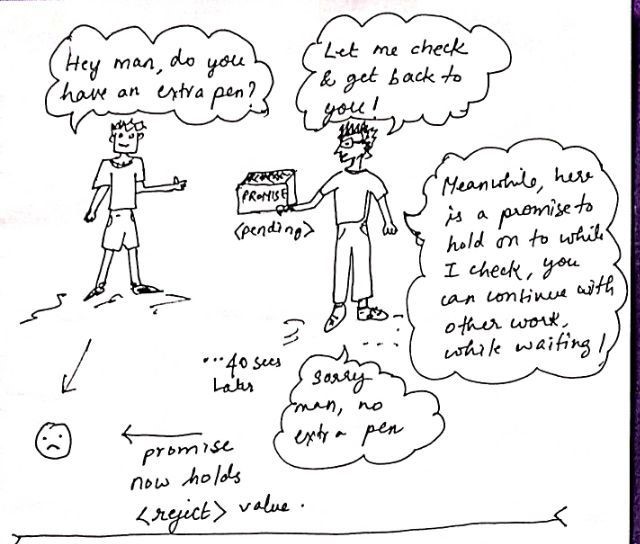 Hey man, do you
have an extra pen?
Let me check
& get back to
you!
PROMISE
<pending>
Meanwhile, here
is a promise to
hold on to while
I check, you
can continue with
other work,
while waiting!
...40 secs
Later
Sorry
man, no
extra pen
promise
now holds
<reject> value.